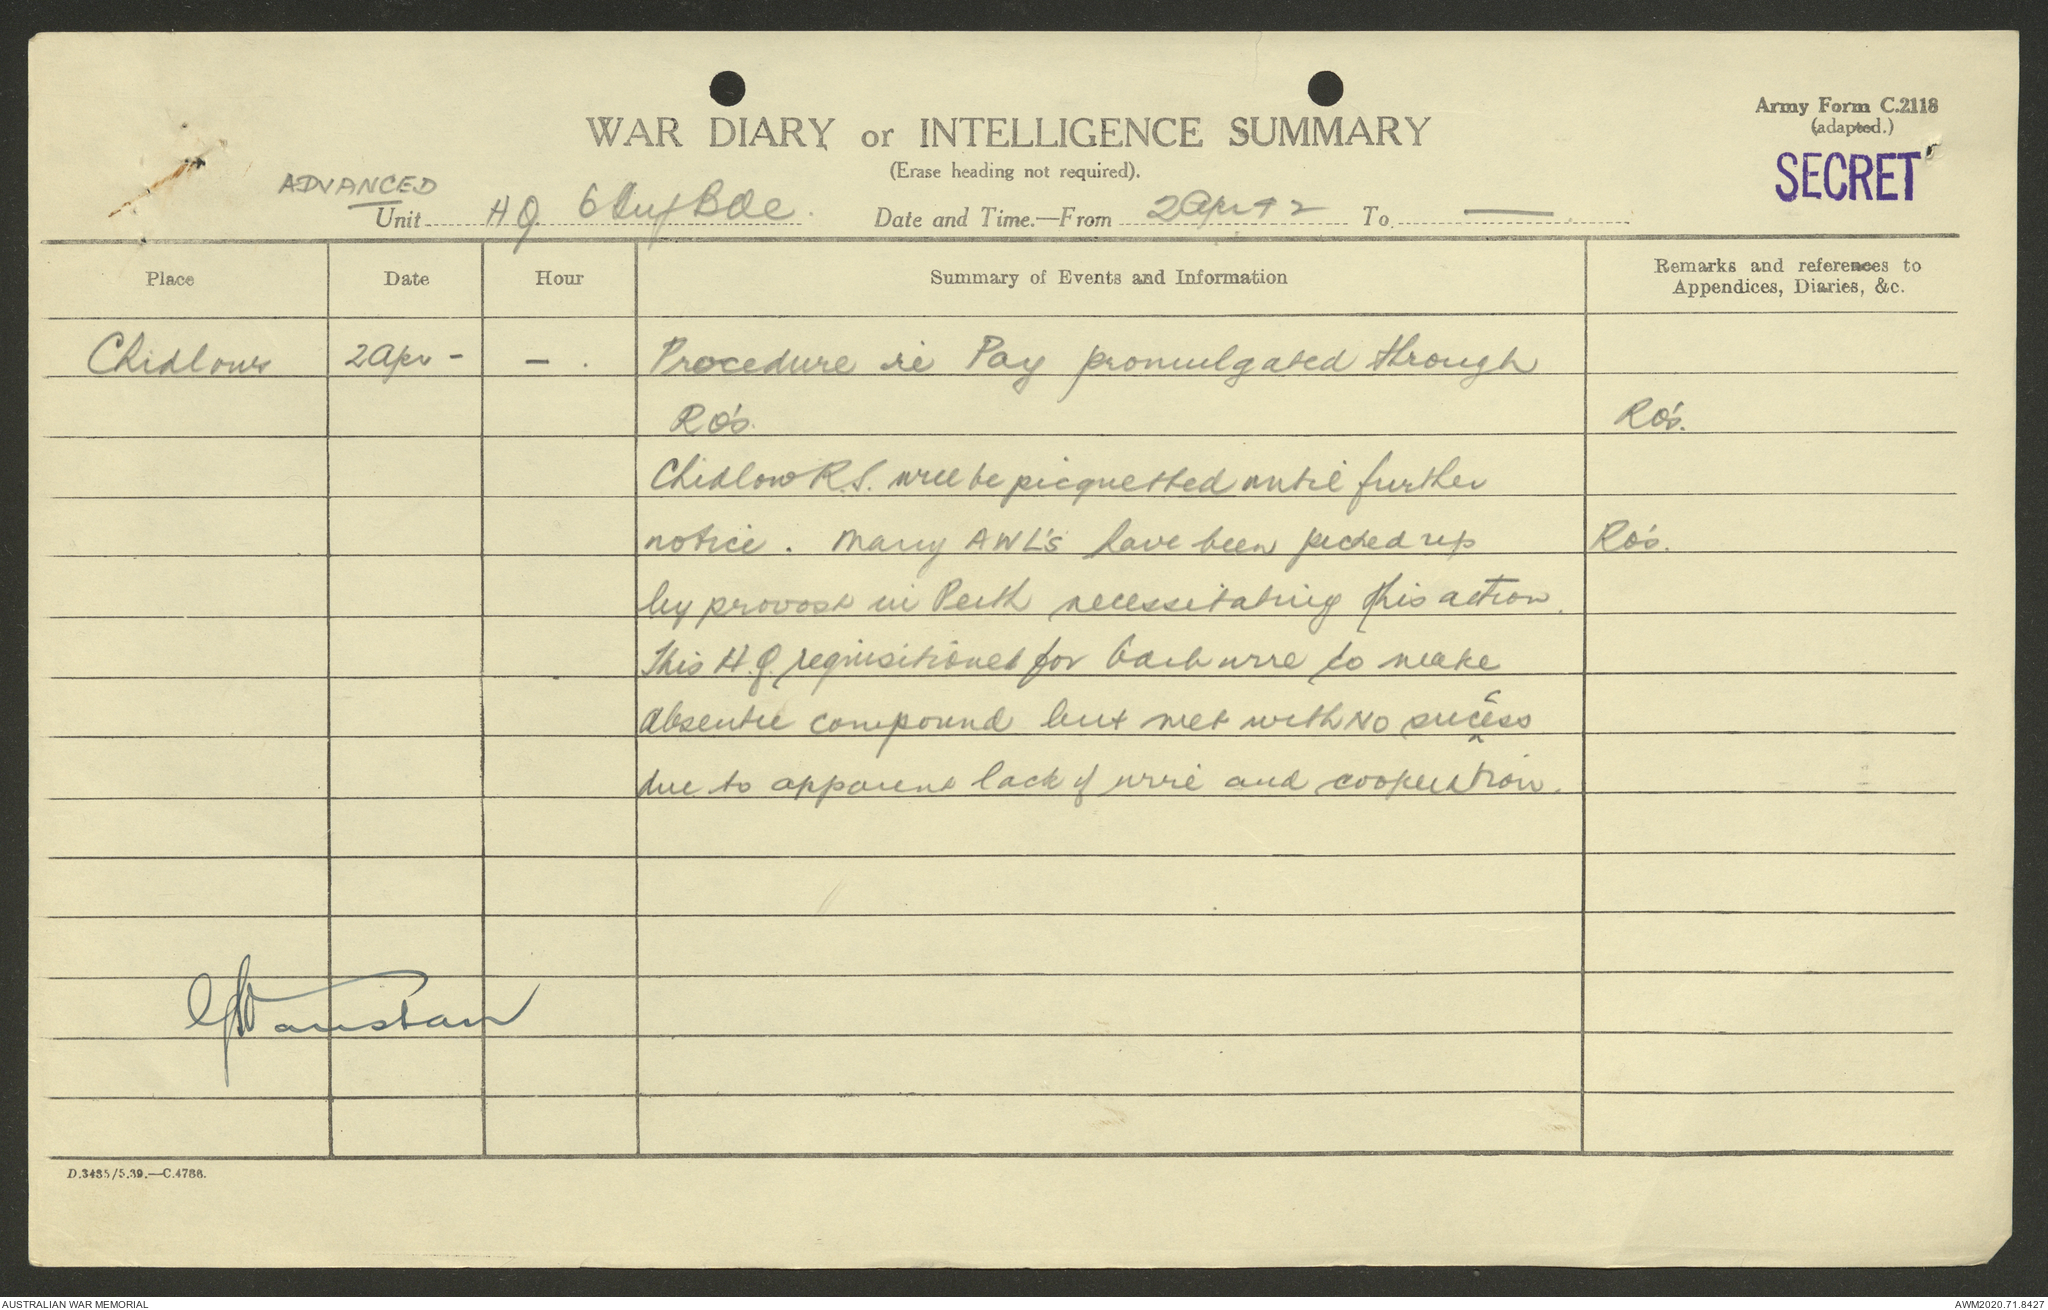 Army Form C.2118
(adapted.)
WAR DIARY or INTELLIGENCE SUMMARY
(Erase heading not required).
SECRET
ADVANCED
Unit HQ. 6 Aust Bde. Date and Time.—From 2 Apr 42 To —
Place Date Hour Summary of Events and Information Remarks and references to
Appendices, Diaries, &c.
Chidlows 2 Apr - - . Procedure re Pay promulgated through
RO's. RO's.
Chidlow R.S. will be picquetted until further
notice. Many AWL's have been picked up RO's.
by provost in Perth necessitating this action.
This H.Q. requisitioned for barb wire to make
absentee compound but met with NO success
due to apparent lack of wire and cooperation.
D.3485/5.39.—C.4786.
AUSTRALIAN WAR MEMORIAL AWM2020.71.8427